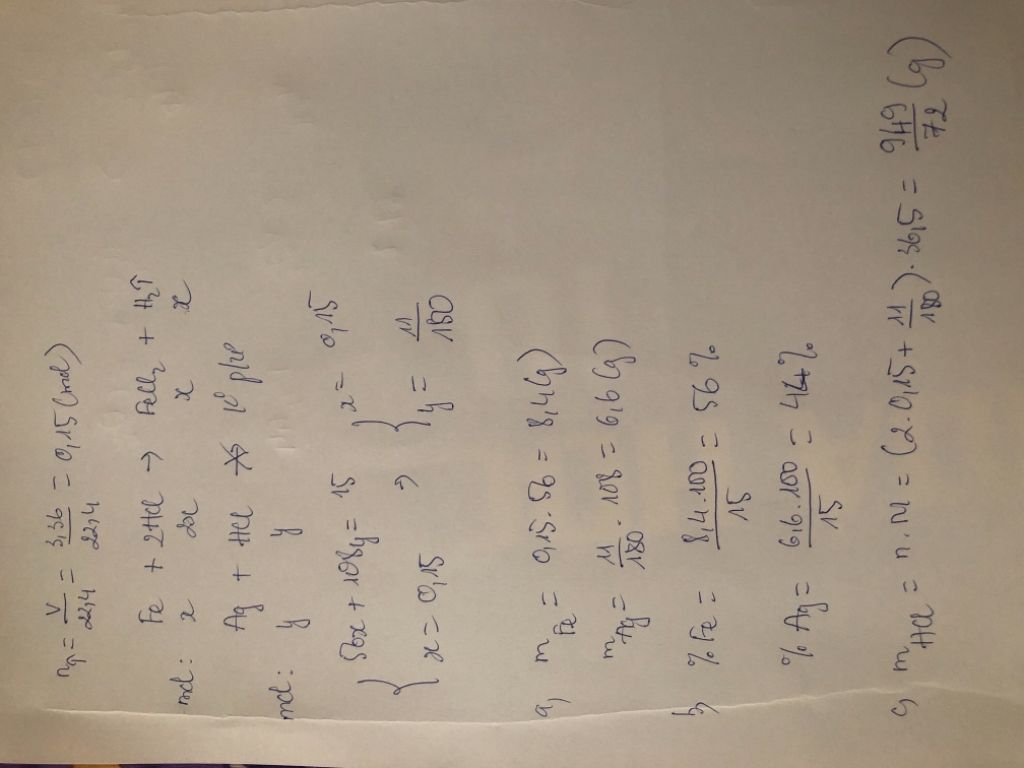 n_{H_2} = \frac{V}{22,4} = \frac{3,36}{22,4} = 0,15 (mol)
Fe + 2HCl → FeCl₂ + H₂↑
mol: x 2x x x
Ag + HCl ↛ k° p/ư
mol: y y
{ 56x + 108y = 15
x = 0,15 → { x = 0,15
y = \frac{11}{180}
a, m_{Fe} = 0,15 . 56 = 8,4 (g)
m_{Ag} = \frac{11}{180} . 108 = 6,6 (g)
b, % Fe = \frac{8,4 . 100}{15} = 56 %
% Ag = \frac{6,6 . 100}{15} = 44 %
c, m_{HCl} = n . M = (2 . 0,15 + \frac{11}{180}) . 36,5 = \frac{949}{72} (g)